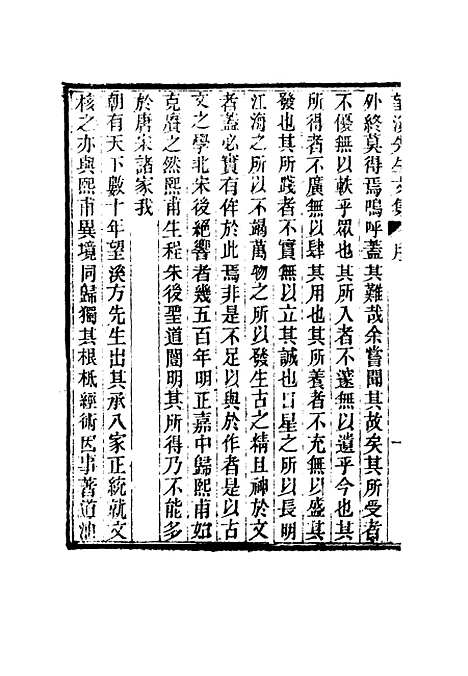 望溪先生文集 序 一
外終莫得焉嗚呼蓋其難哉余嘗聞其故矣其所受者
不優無以軼乎眾也其所入者不邃無以遺乎今也其
所得者不廣無以肆其用也其所養者不充無以盛其
發也其所踐者不實無以立其誠也日星之所以長明
江海之所以不竭萬物之所以發生古之精且神於文
者蓋必實有侔於此焉非是不足以與於作者是以古
文之學北宋後絕響者幾五百年明正嘉中歸熙甫始
克賡之然熙甫生程朱後聖道闡明其所得乃不能多
於唐宋諸家我
朝有天下數十年望溪方先生出其承八家正統就文
核之亦與熙甫異境同歸獨其根柢經術因事著道油